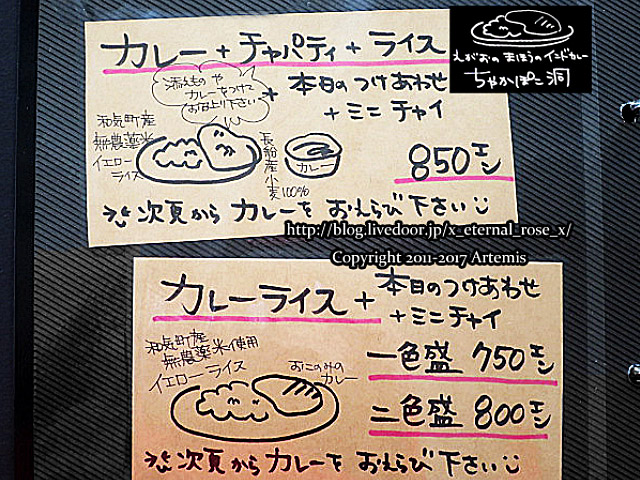 えがおのまほうのインドカレー
ちゃかぽこ洞
カレー+チャパティ+ライス
添えもの や
カレーをつけて
お召上り下さい
+ 本日のつけあわせ
+ ミニ チャイ
和気町産
無農薬米
イエロー
ライス
長船産小麦100%
カレー
850エン
次頁から カレーを おえらび 下さい
http://blog.livedoor.jp/x_eternal_rose_x/
Copyright 2011-2017 Artemis
カレーライス + 本日のつけあわせ
+ ミニチャイ
和気町産
無農薬米使用
イエローライス
おこのみの
カレー
一色盛 750エン
二色盛 800エン
次頁から カレーを おえらび 下さい